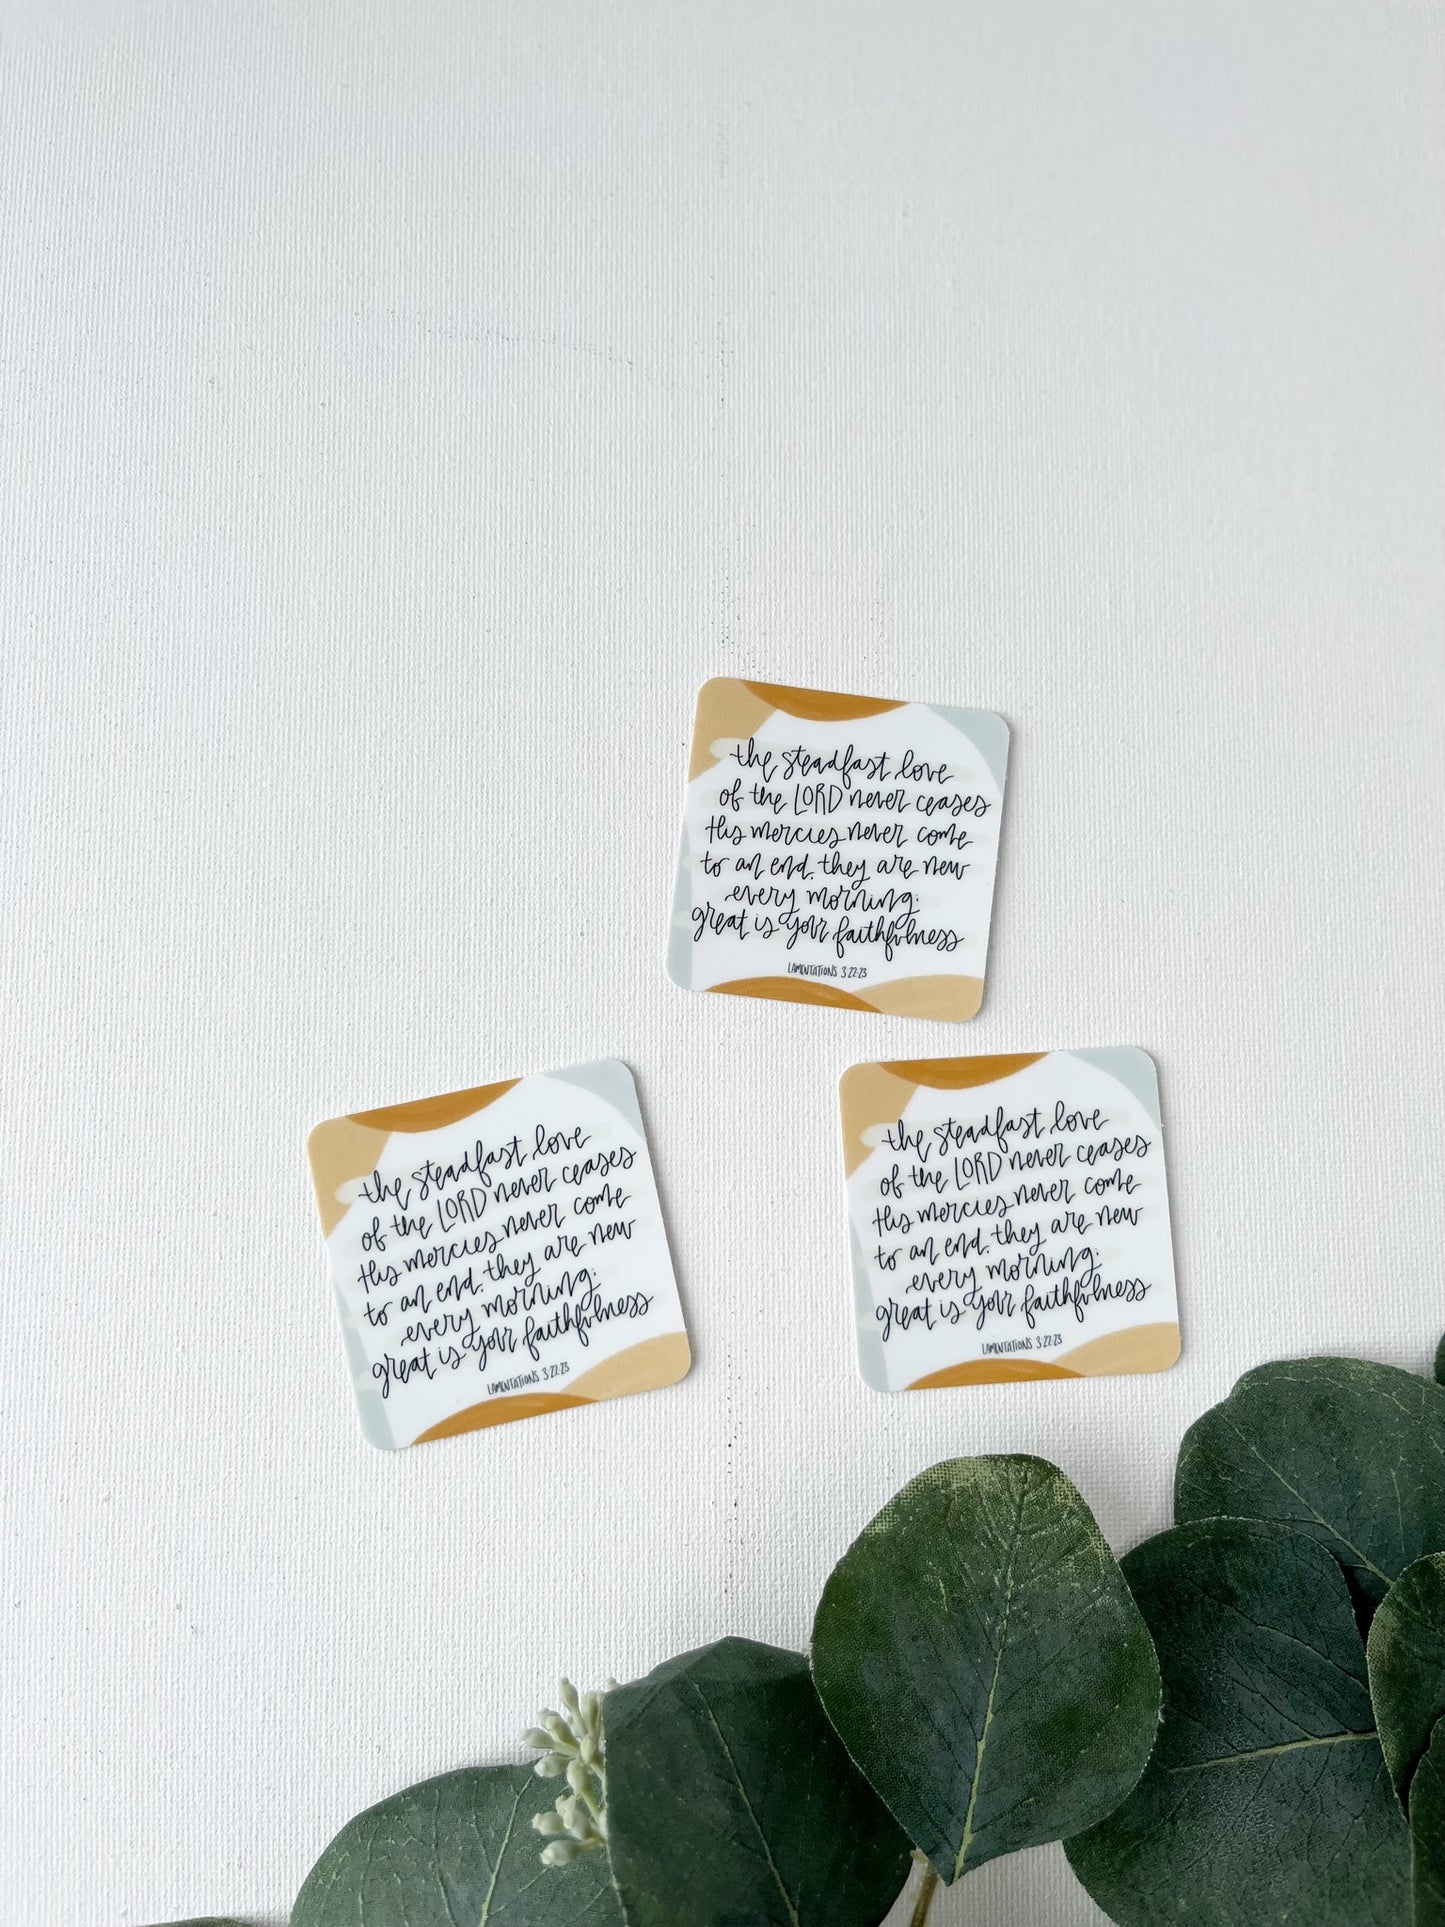 the steadfast love
of the LORD never ceases
His mercies never come
to an end. they are new
every morning:
great is your faithfulness
LAMENTATIONS 3:22-23
the steadfast love
of the LORD never ceases
His mercies never come
to an end. they are new
every morning:
great is your faithfulness
LAMENTATIONS 3:22-23
the steadfast love
of the LORD never ceases
His mercies never come
to an end. they are new
every morning:
great is your faithfulness
LAMENTATIONS 3:22-23